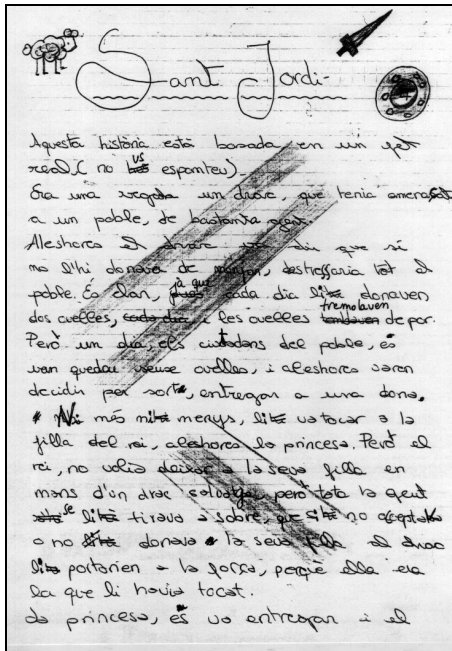 Sant Jordi
Aquesta història està basada en un fet
real (no us espanteu).
Era una vegada un drac, que tenia amenaçat
a un poble, de bastanta gent.
Aleshores el drac va dir que si
no l'hi donava de menjar, destrossaria tot el
poble. És clar, ja que cada dia li donaven
dos ovelles, i les ovelles tremolaven de por.
Però un dia, els ciutadans del poble, es
van quedar sense ovelles, i aleshores varen
decidir per sort, entregar a una dona.
Ni més ni menys, li va tocar a la
filla del rei, aleshores la princesa. Però el
rei, no volia deixar a la seva filla en
mans d'un drac salvatge, però tota la gent
se li tirava a sobre, que si no acceptava
o no donava a la seva filla al drac
li portarien a la força, perquè ella era
la que li havia tocat.
La princesa, es va entregar i el